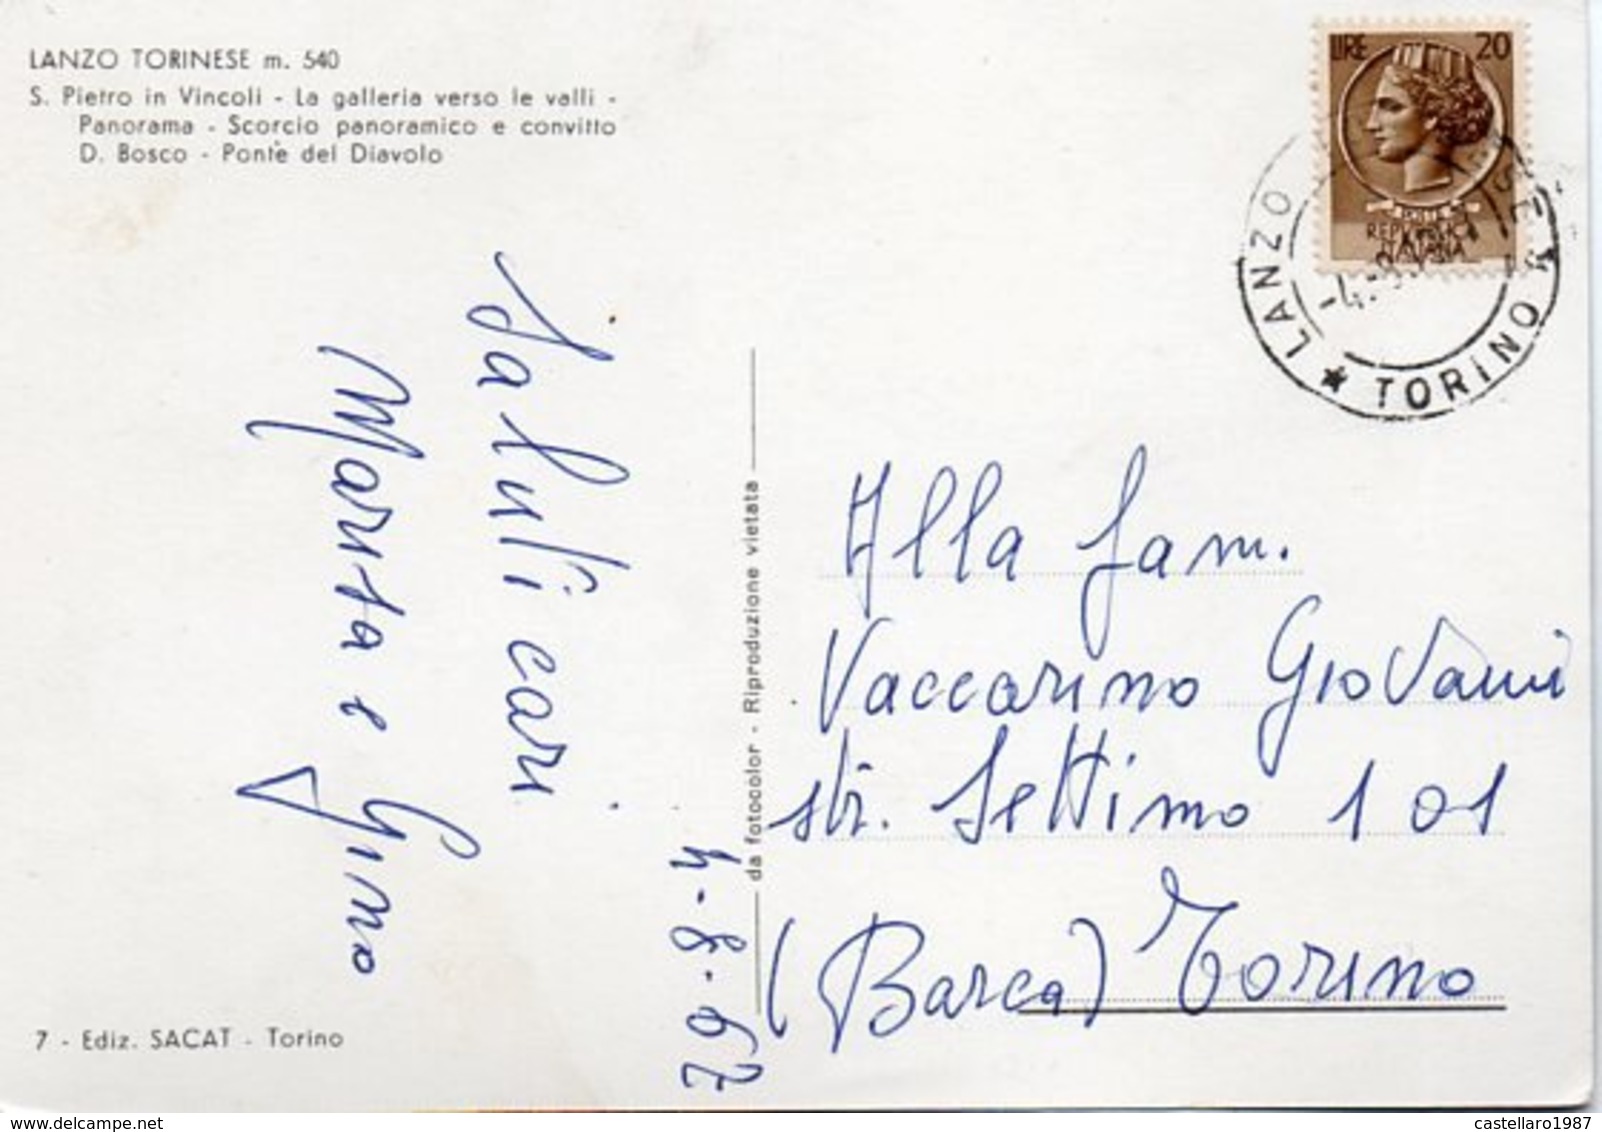 LANZO TORINESE m. 540
S. Pietro in Vincoli - La galleria verso le valli -
Panorama - Scorcio panoramico e convitto
D. Bosco - Ponte del Diavolo
LIRE 20
POSTE
REPUBBLICA
ITALIANA
LANZO
★ TORINO ★
-4.-8.
Saluti cari
Marisa e Gino
4-8-67
da fotocolor - Riproduzione vietata
Alla fam.
Vaccarino Giovanni
str. Settimo 101
(Barca) Torino
7 - Ediz. SACAT - Torino
delcampe.net
castellaro1987